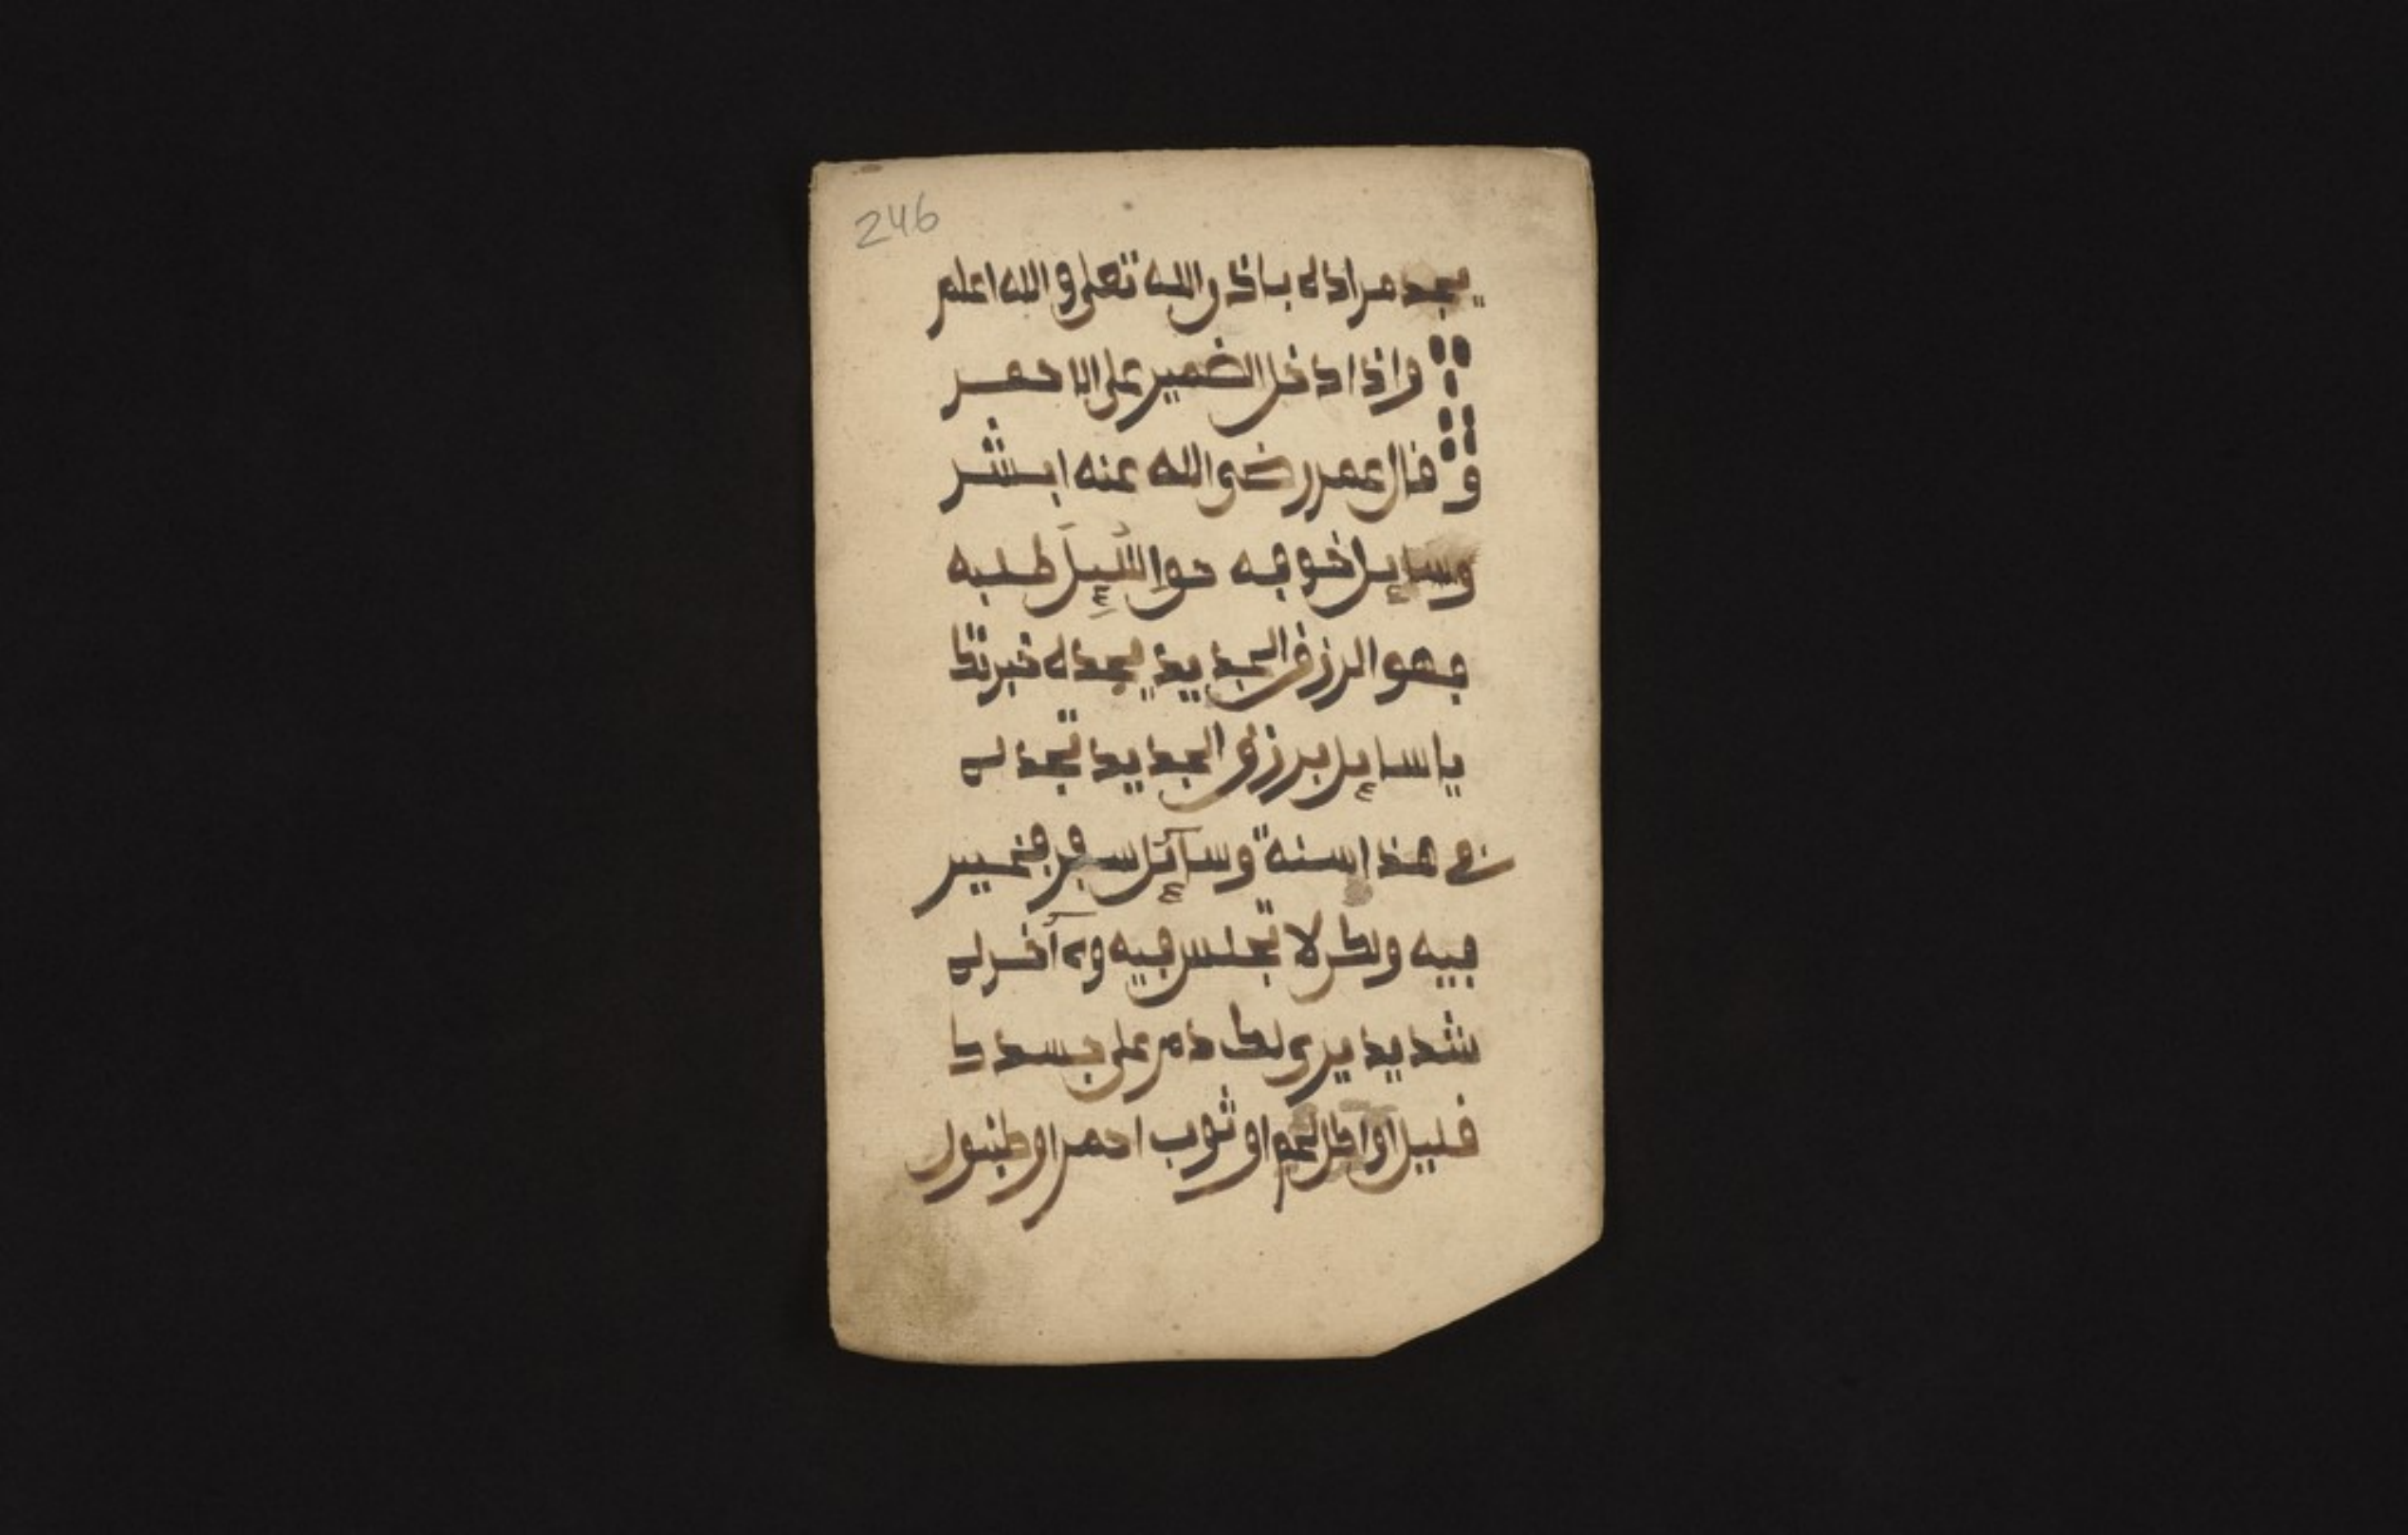 246
يجد مراد له باذن الله تعلى والله اعلم
واذا دخل الضمير على الاحمر
و قال عمر رضي الله عنه ابشر
وسايل اخوفه هو السّيل طلبه
فهو الرزق الجديد يجد له خبر تكا
يا سايل برزق الجديد تجد له
في هذا سنة وسائل سفر فخير
فيه ولكن لا تجلس فيه و آخر له
شديد يرى لك دم على جسد كا
قليل او اكل لحم او ثوب احمر او طنبول